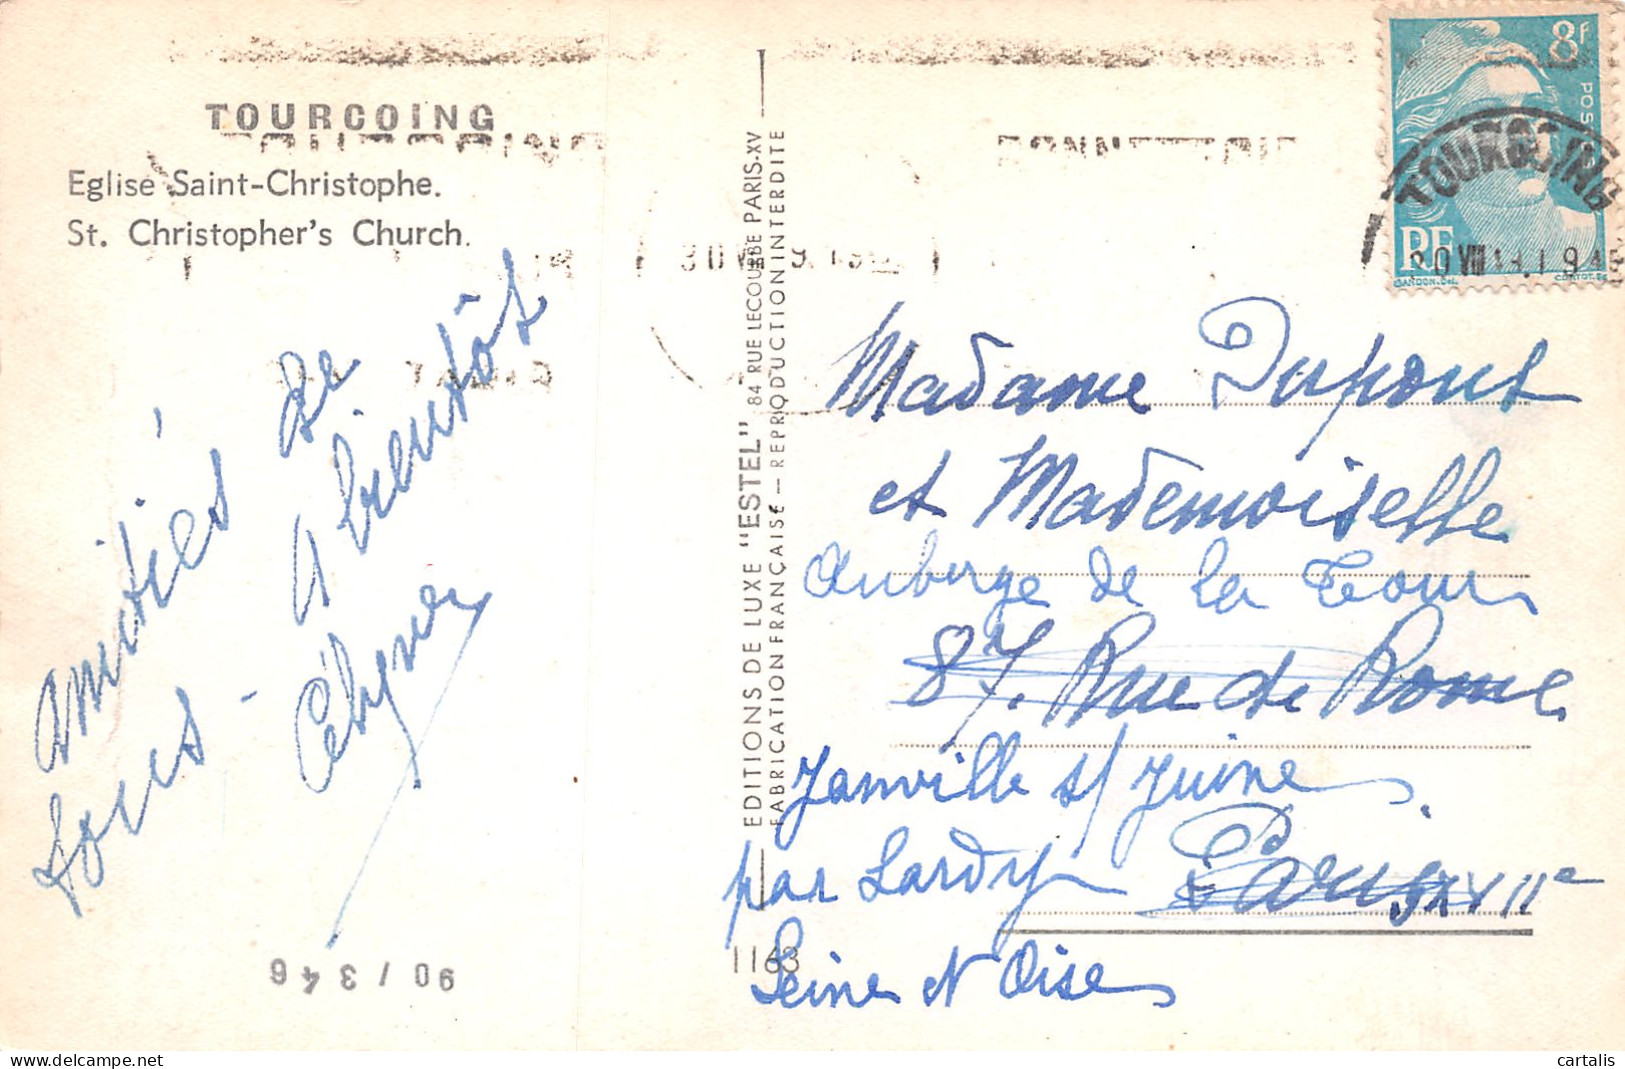 TOURCOING
Eglise Saint-Christophe.
St. Christopher's Church.
Amitiés de
tous - A bientôt
90/346
EDITIONS DE LUXE "ESTEL" 84 RUE LECOURBE PARIS-XV
FABRICATION FRANÇAISE - REPRODUCTION INTERDITE
1163
8f
POS
RF
GANDON.DEL.
TOURCOING
Madame Dupont
et Mademoiselle
Auberge de la Tour
87. Rue de Rome
Janville s/ Juine
par Lardy Paris XVIIe
Seine et Oise
cartalis